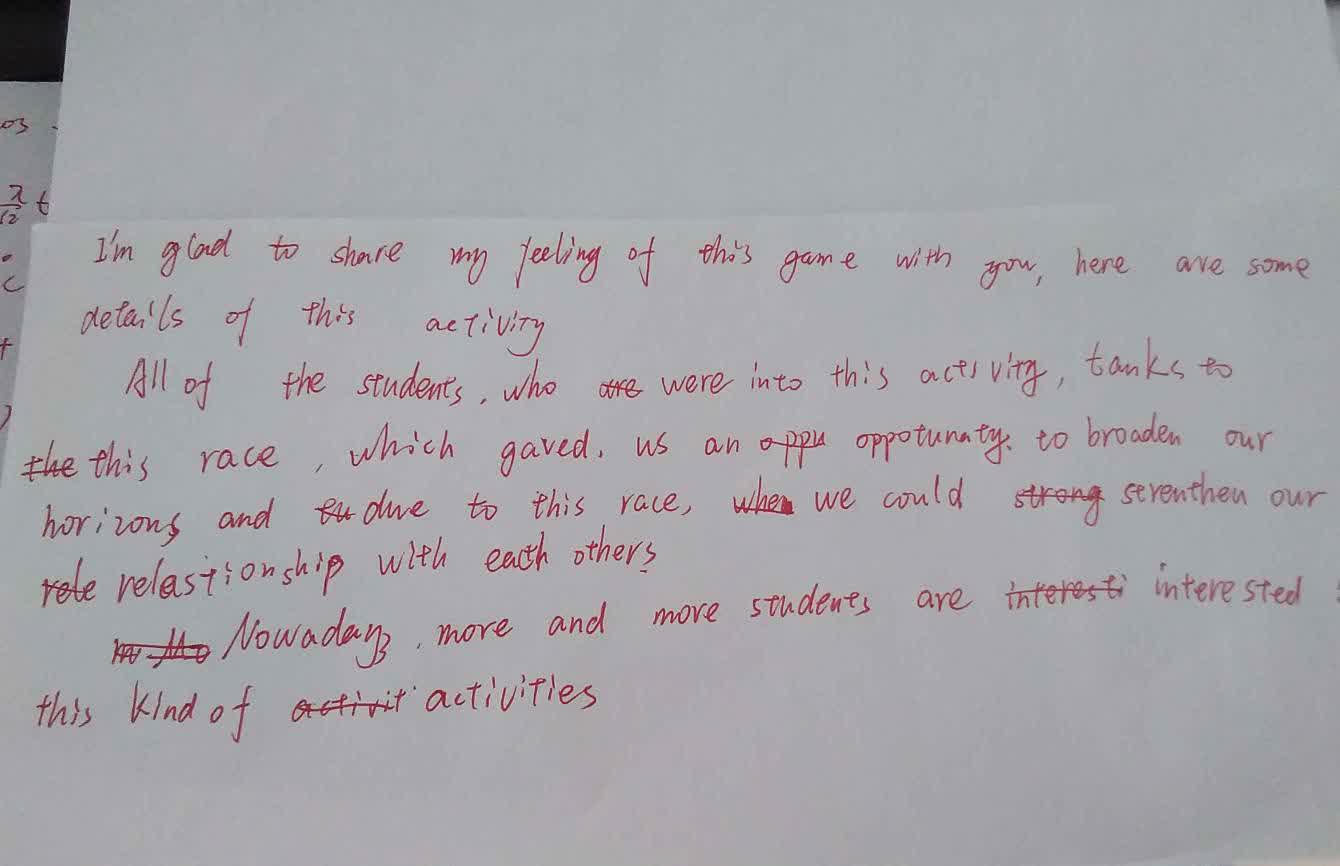 I'm glad to share my feeling of this game with you, here are some
details of this activity
All of the students, who are were into this activity, tanks to
the this race, which gaved. us an oppu oppotunaty. to broaden our
horizons and eu due to this race, when we could strong strenthen our
rele relastionship with each others
Nowadays, more and more students are interesti interested
this kind of activit activities